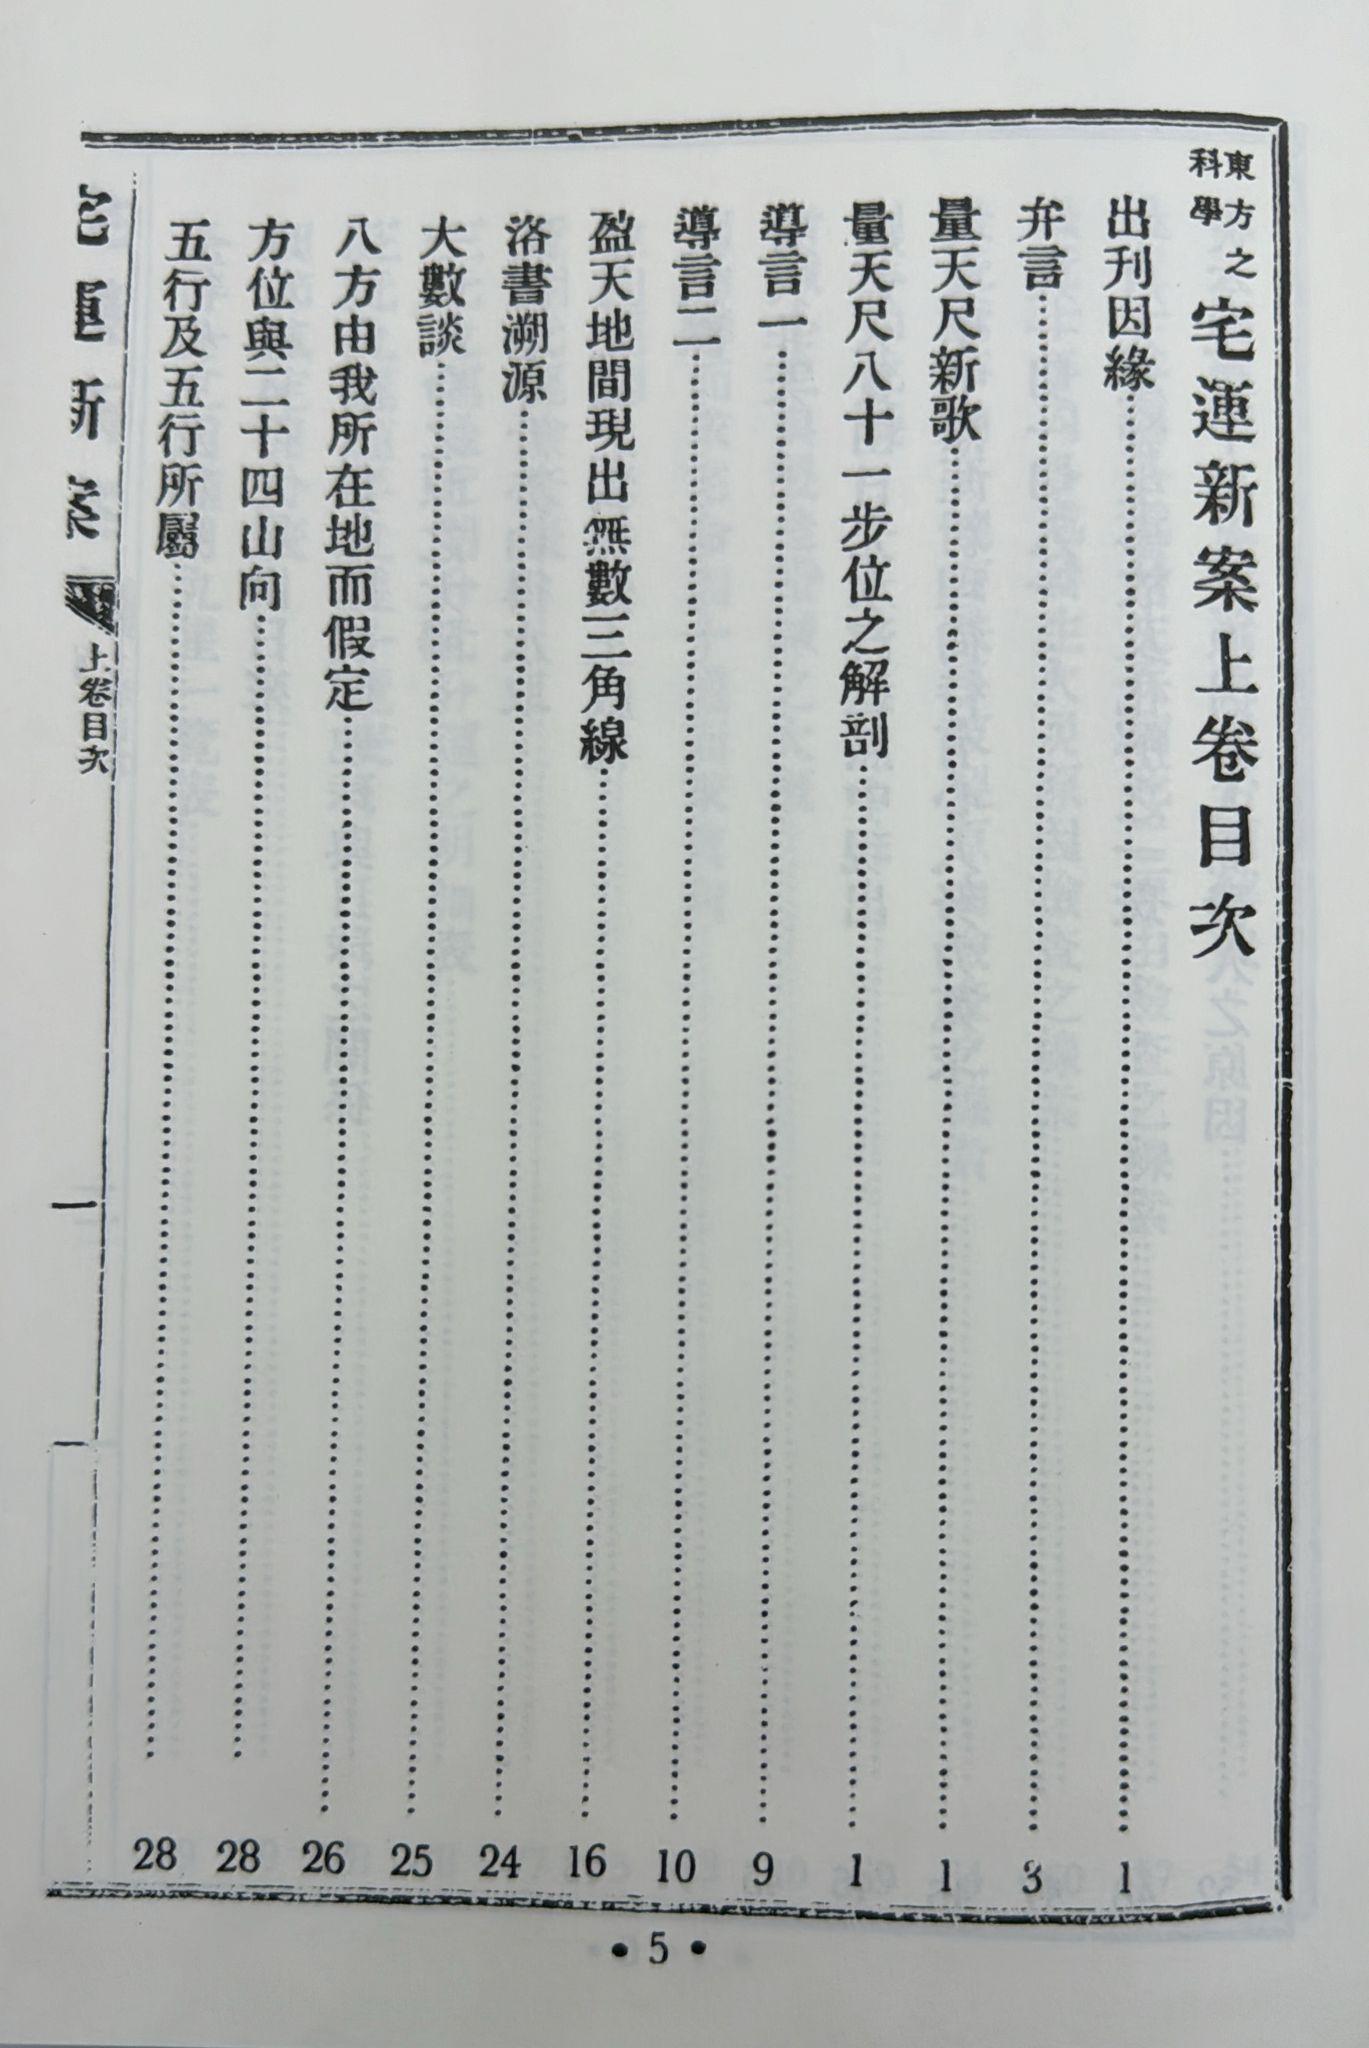 東方之科學 宅運新案上卷目次
出刊因緣……1
弁言……3
量天尺新歌……1
量天尺八十一步位之解剖……1
導言一……9
導言二……10
盈天地間現出無數三角線……16
洛書溯源……24
大數談……25
八方由我所在地而假定……26
方位與二十四山向……28
五行及五行所屬……28
宅運新案 上卷目次 一
•5•